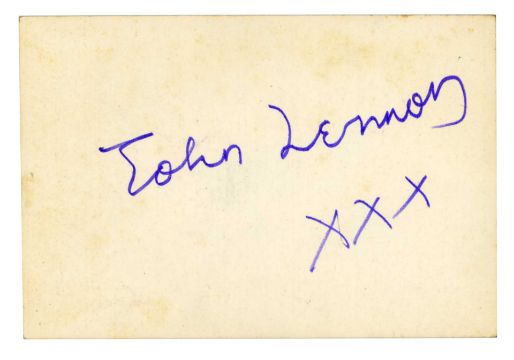 John Lennon
xxx